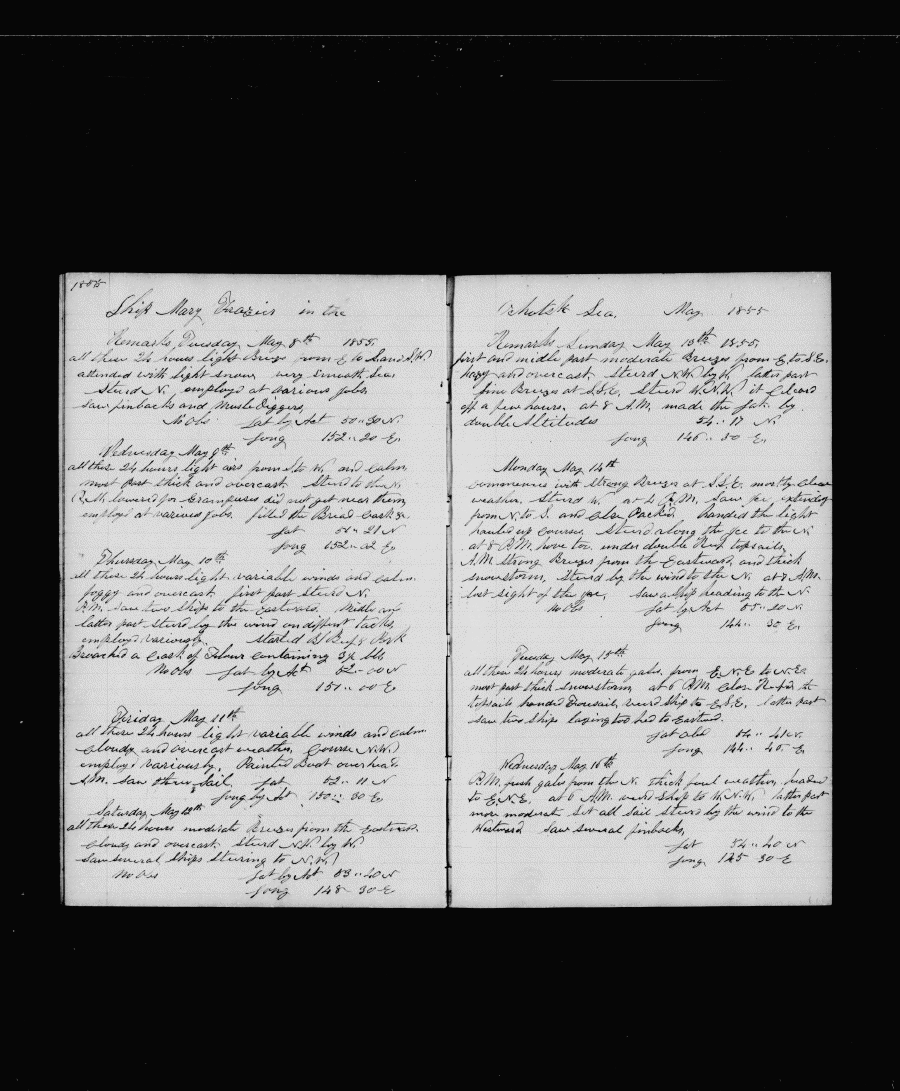 1855
Ship Mary Frazier in the
Remarks, Tuesday May 8th 1855
all these 24 hours light Breeze from E to S and S.W.
attended with light snow very smooth Sea
Steerd N. employed at various jobs
Saw finbacks and Muscle Diggers,
No Obs Lat by Act 50 .. 30 N.
Long 152 .. 20 E.
Wednesday May 9th
all these 24 hours light airs from S. to W. and Calm
most part thick and overcast Steerd to the N.
P.M. lowered for Grampuses did not get near them
employd at varieus jobs. filled the Bread Cask &c
Lat 51 .. 21 N
Long 152 .. 02 E.
Thursday May 10th
all these 24 hours light variable winds and calm
foggy and overcast first part steerd N.
P.M. saw two ships to the Eastward. Middle and
latter part steerd by the wind on diffrent tacks,
employd variously. started B/ Beef & Pork
Broached a Cask of Flour containing 3½ bbls
No Obs Lat by Act 52 .. 00 N
Long 151 .. 00 E
Friday May 11th
all these 24 hours light variable winds and calm
Cloudy and overcast weather, Course N.W.
employd variously. Painted Boat overhead
A.M. saw three Sail, Lat 52 .. 11 N
Long by Act 150 .. 30 E.
Saturday May 12th
all these 24 hours moderate Breezes from the Eastward.
Cloudy and overcast. Steerd N.W. by W.
Saw several Ships steering to N.W.
No Obs Lat by Act 53 .. 20 N
Long 148 - 30 E
Ochotsk Sea, May 1855
Remarks Sunday May 13th 1855
first and midle part moderate Breezes from E to S.E.
hazy and overcast steerd N.W. by W. latter part
fine Breezes at S.S.E. Steerd W.N.W. it Cleared
off a few hours. at 8 A.M. made the Lat. by
double Altitudes 54 .. 17 N.
Long 146 .. 30 E.
Monday May 14th
Commences with Strong Breezes at S.S.E. mostly Clear
weather, Steerd W. at 4 P.M. Saw Ice, extending
from N. to S. and Close Packd handed the light
hauled up Courses. Steerd along the Ice to the N.
at 8 P.M. hove too under double Reef topsails,
A.M. Strong Breezes from the Eastward, and thick
snowstorm, Steerd by the wind to the N. at 7 A.M.
lost sight of the Ice, Saw a Ship heading to the N.
No Obs Lat by Act 55 .. 20 N.
Long 144 .. 30 E.
Tuesday May 15th
all these 24 hours moderate gales, from E.N.E to N.E.
most part thick Snowstorm, at 6 P.M. Close Reef'd the
topsails handed Foresail, veerd Ship to E.S.E. latter part
saw two Ships laying too hed to Eastwd.
Lat Obs 54 .. 41 N.
Long 144 .. 45 - E
Wednesday May 16th
P.M. fresh gales from the N. thick foul weather, headed
to E.N.E. at 6 A.M. veerd Ship to W.N.W. latter part
more moderate Set all Sail steerd by the wind to the
Westward Saw several finbacks,
Lat 54 .. 40 N
Long 145 30 E